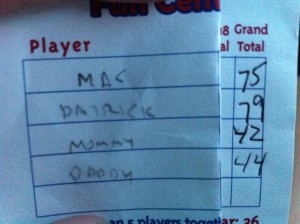 Fun Cent
Player
18 Grand
al Total
MAC 75
PATRICK 79
MOMMY 42
DADDY 44
an 5 players together
ar: 36